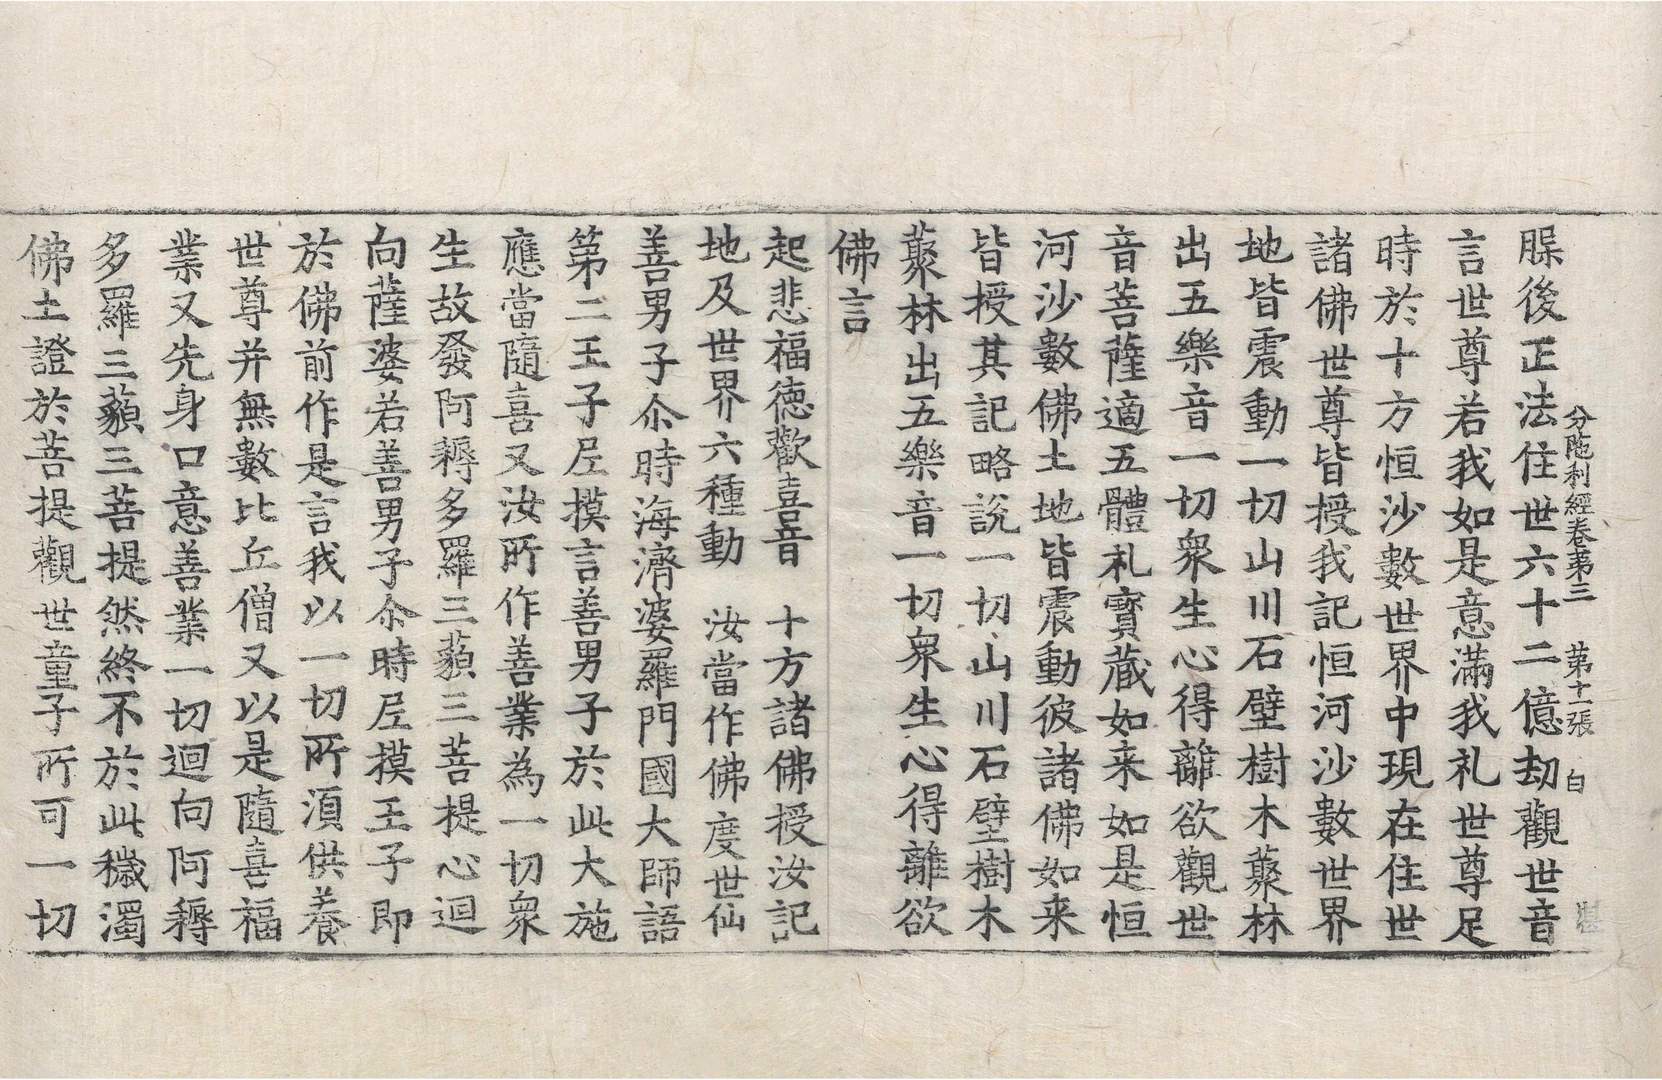 分陁利經卷苐三　苐十一張　白
腺後正法住世六十二億劫觀世音
言世尊若我如是意滿我礼世尊足
時於十方恒沙數世界中現在住世
諸佛世尊皆授我記恒河沙數世界
地皆震動一切山川石壁樹木藂林
出五樂音一切衆生心得離欲觀世
音菩薩適五體礼寶蔵如来如是恒
河沙數佛土地皆震動彼諸佛如来
皆授其記略說一切山川石壁樹木
藂林出五樂音一切衆生心得離欲
佛言
起悲福徳歡喜音　十方諸佛授汝記
地及世界六種動　汝當作佛度世仙
善男子尒時海濟婆羅門國大師語
第二王子𡰱摸言善男子於此大施
應當隨喜又汝所作善業為一切衆
生故發阿耨多羅三藐三菩提心迴
向薩婆若善男子尒時𡰱摸王子即
於佛前作是言我以一切所湏供養
世尊并無數比丘僧又以是隨喜福
業又先身口意善業一切迴向阿耨
多羅三藐三菩提然終不於此穢濁
佛土證於菩提觀世童子所可一切